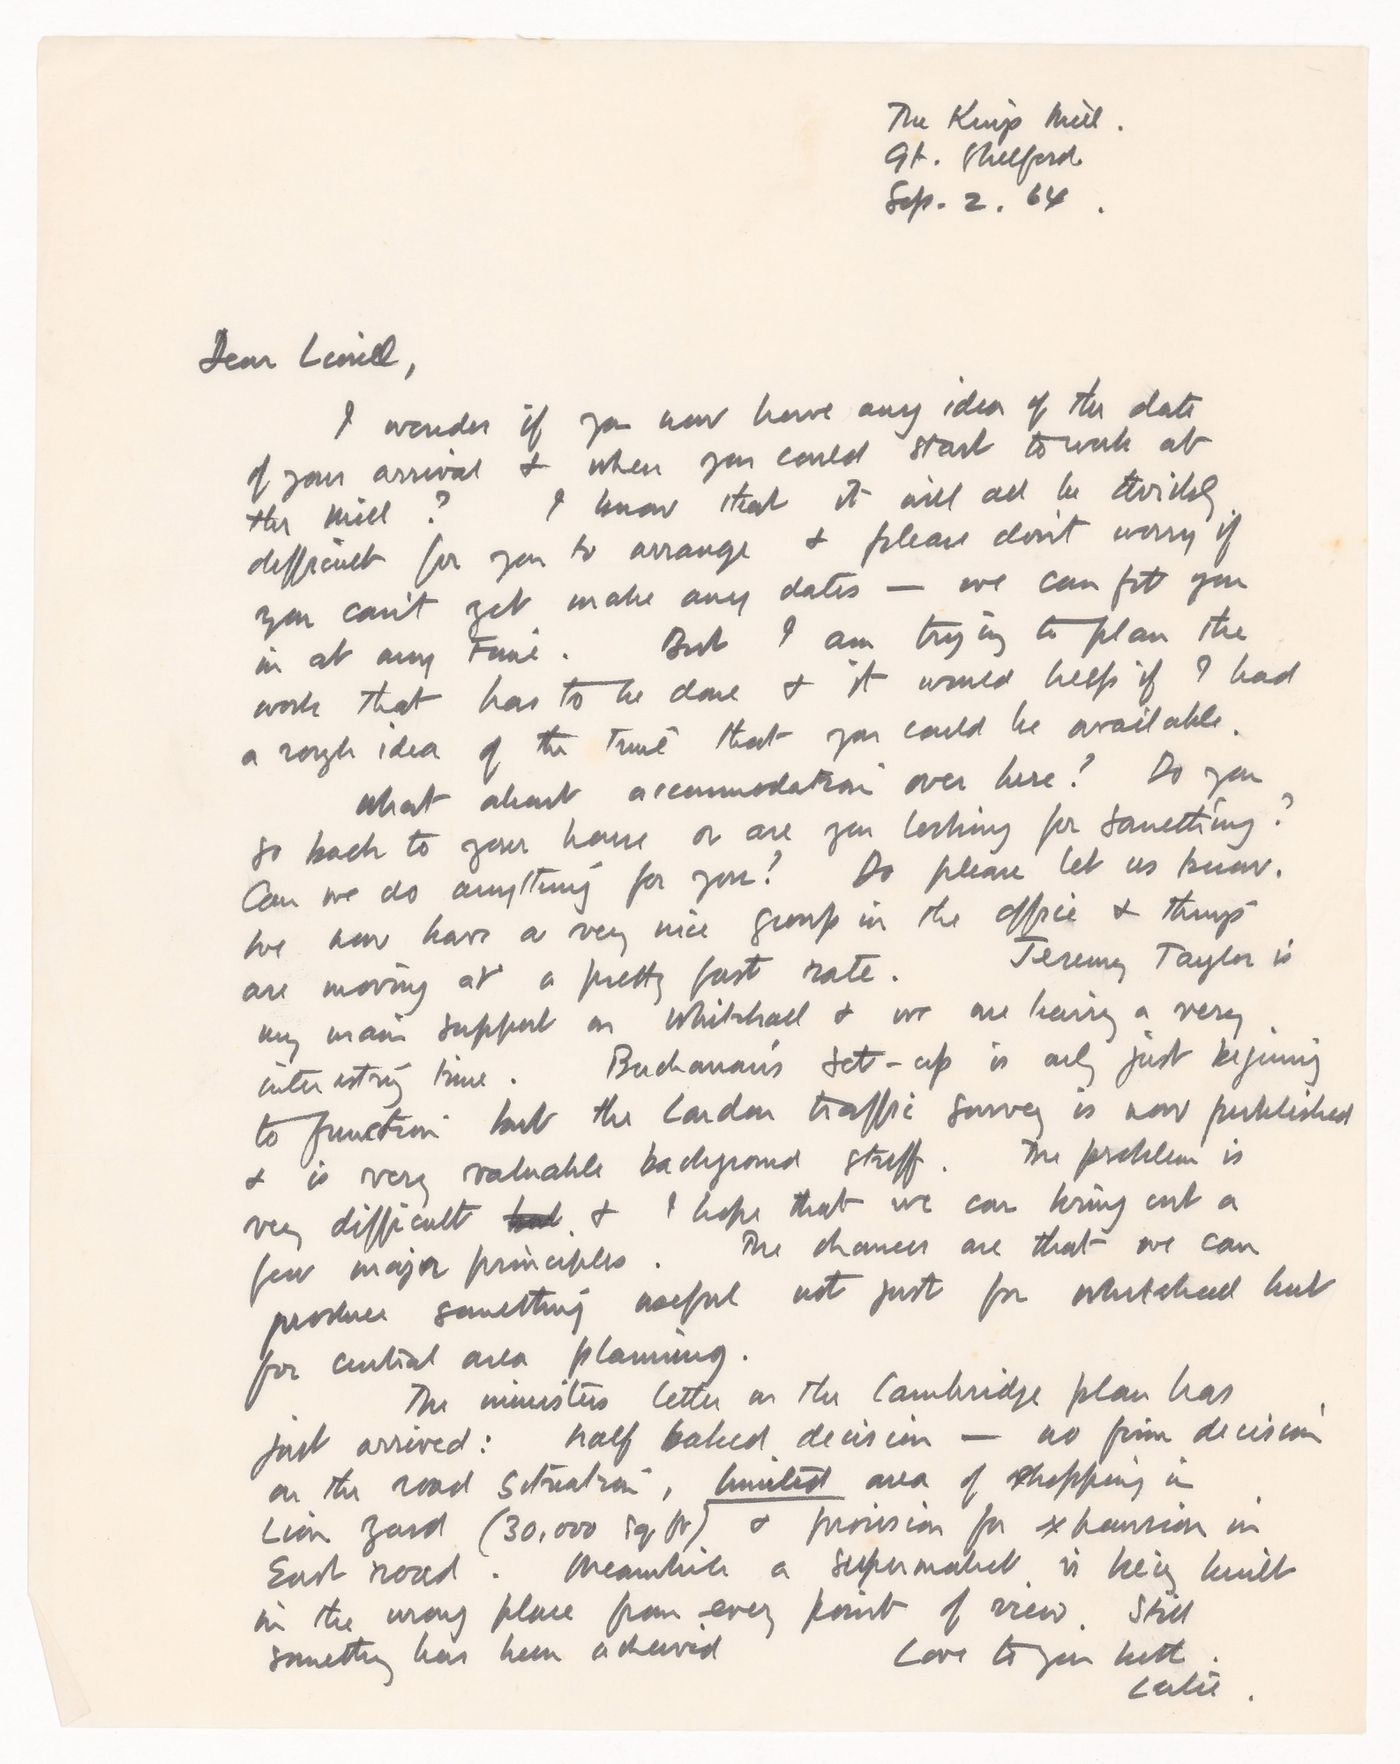 The Kings Mill.
Gt. Shelford
Sep. 2. 64.
Dear Lionel,
I wonder if you now have any idea of the date
of your arrival & when you could start to work at
the Mill? I know that it will all be
difficult for you to arrange & please don't worry if
you can't yet make any dates — we can fit you
in at any time. But I am trying to plan the
work that has to be done & it would help if I had
a rough idea of the time that you could be available.
What about accommodation over here? Do you
go back to your house or are you looking for something?
Can we do anything for you? Do please let us know.
We now have a very nice group in the office & things
are moving at a pretty fast rate. Jeremy Taylor is
my main support on Whitehall & we are having a very
interesting time. Buchanan's set-up is only just begining
to function but the London traffic survey is now published
& is very valuable background stuff. The problem is
very difficult & I hope that we can bring out a
few major principles. The chances are that we can
produce something useful not just for whitehall but
for central area planning.
The ministers letter on the Cambridge plan has
just arrived: half baked decision — no firm decision
on the road situation, limited area of shopping in
Lion yard (30,000 sq ft) & provision for expansion in
East road. Meanwhile a supermarket is being built
in the wrong place from every point of view. Still
something has been achieved Love to you both.
Leslie.